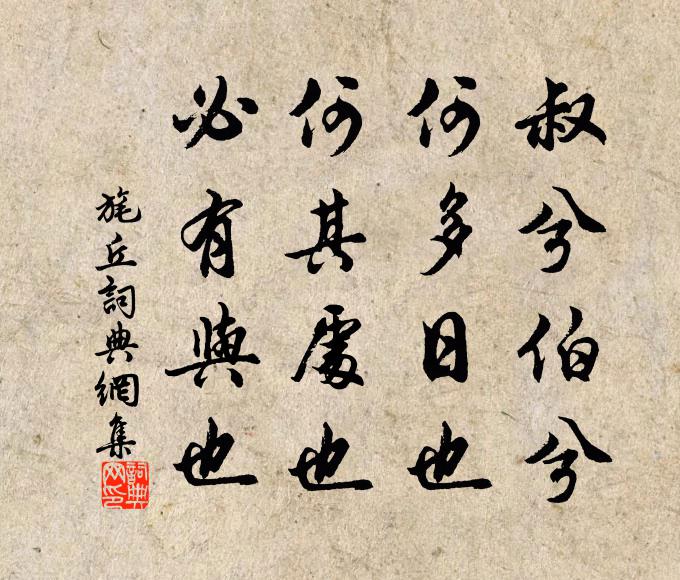 叔兮伯兮
何多日也
何其處也
必有與也
旄丘詞典網集
詞典
网印